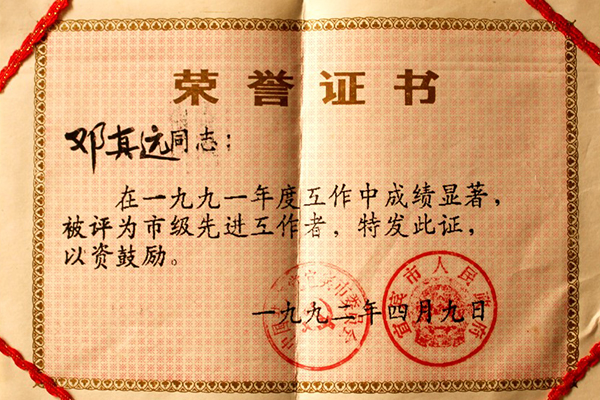 荣誉证书
邓真远同志：
在一九九一年度工作中成绩显著，
被评为市级先进工作者，特发此证，
以资鼓励。
一九九二年四月九日
宜宾市人民政府